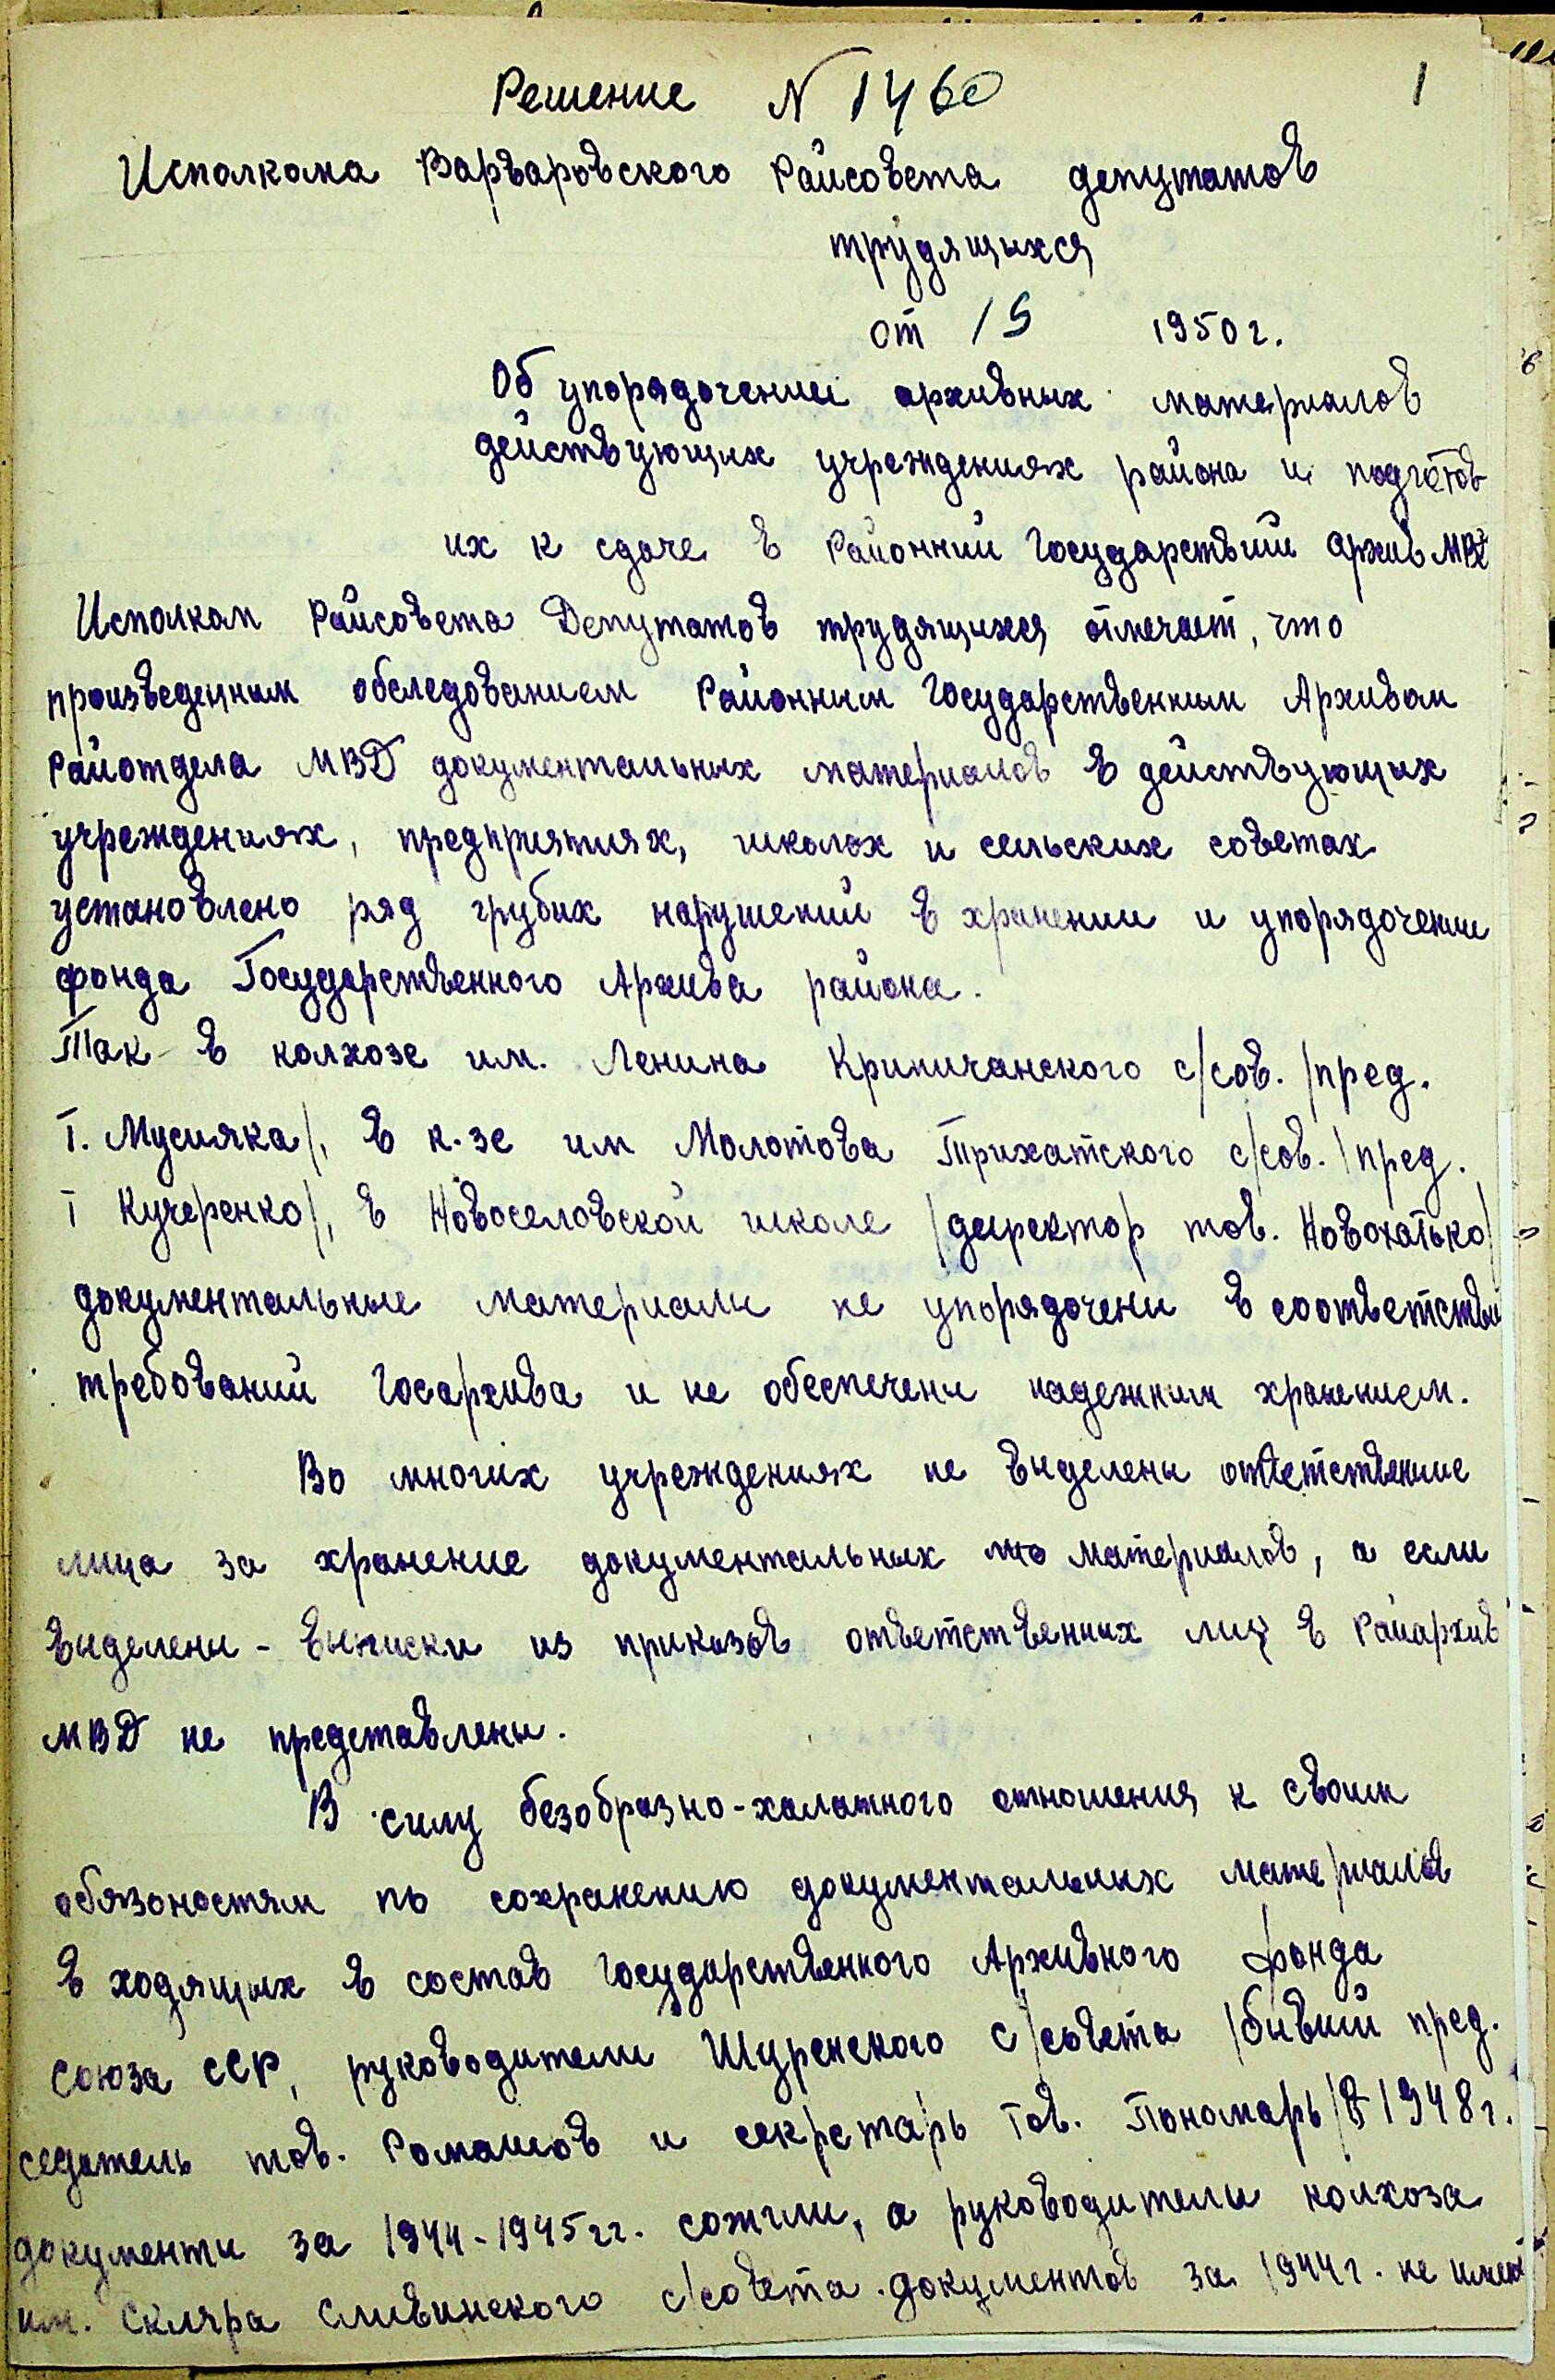 1
Решение N 1460
Исполкома Варваровского Райсовета депутатов
трудящихся
от 15 1950 г.
Об упорядочении архивных материалов
действующих учреждениях района и подготов
их к сдаче в Районний Государствий архив МВД
Исполком Райсовета Депутатов трудящихся отмечает, что
произведенным обследованием Районным Государственным Архивом
Райотдела МВД документальных материалов в действующих
учреждениях, предприятиях, школах и сельских советах
установлено ряд грубих нарушений в хранении и упорядочении
фонда Государственного Архива района.
Так в колхозе им. Ленина Криничанского с/сов. /пред.
т. Мусияка/, в к-зе им Молотова Трихатского с/сов. /пред.
т Кучеренко/, в Новоселовской школе /директор тов. Новохатько/
документальные материали не упорядочени в соответствии
требований Госархива и не обеспечени надежним хранением.
Во многих учреждениях не выделены ответственние
лица за хранение документальных материалов, а если
выделены - выписки из приказов ответственних лиц в Райархив
МВД не представлены.
В силу безобразно-халатного отношения к своим
обязаностям по сохранению документальних материалов
в ходящих в состав Государственного Архивного фонда
Союза ССР, руководители Щуренского с/совета /бивший пред.
седатель тов. Ромашов и секретарь тов. Пономарь/ в 1948 г.
документи за 1944-1945 гг. сожгли, а руководители колхоза
им. Скляра Сливинского с/совета документов за 1944 г. не имеют